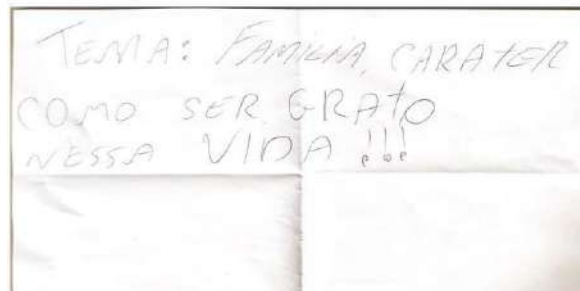 TEMA: FAMILIA, CARATER
COMO SER GRATO
NESSA VIDA!!!